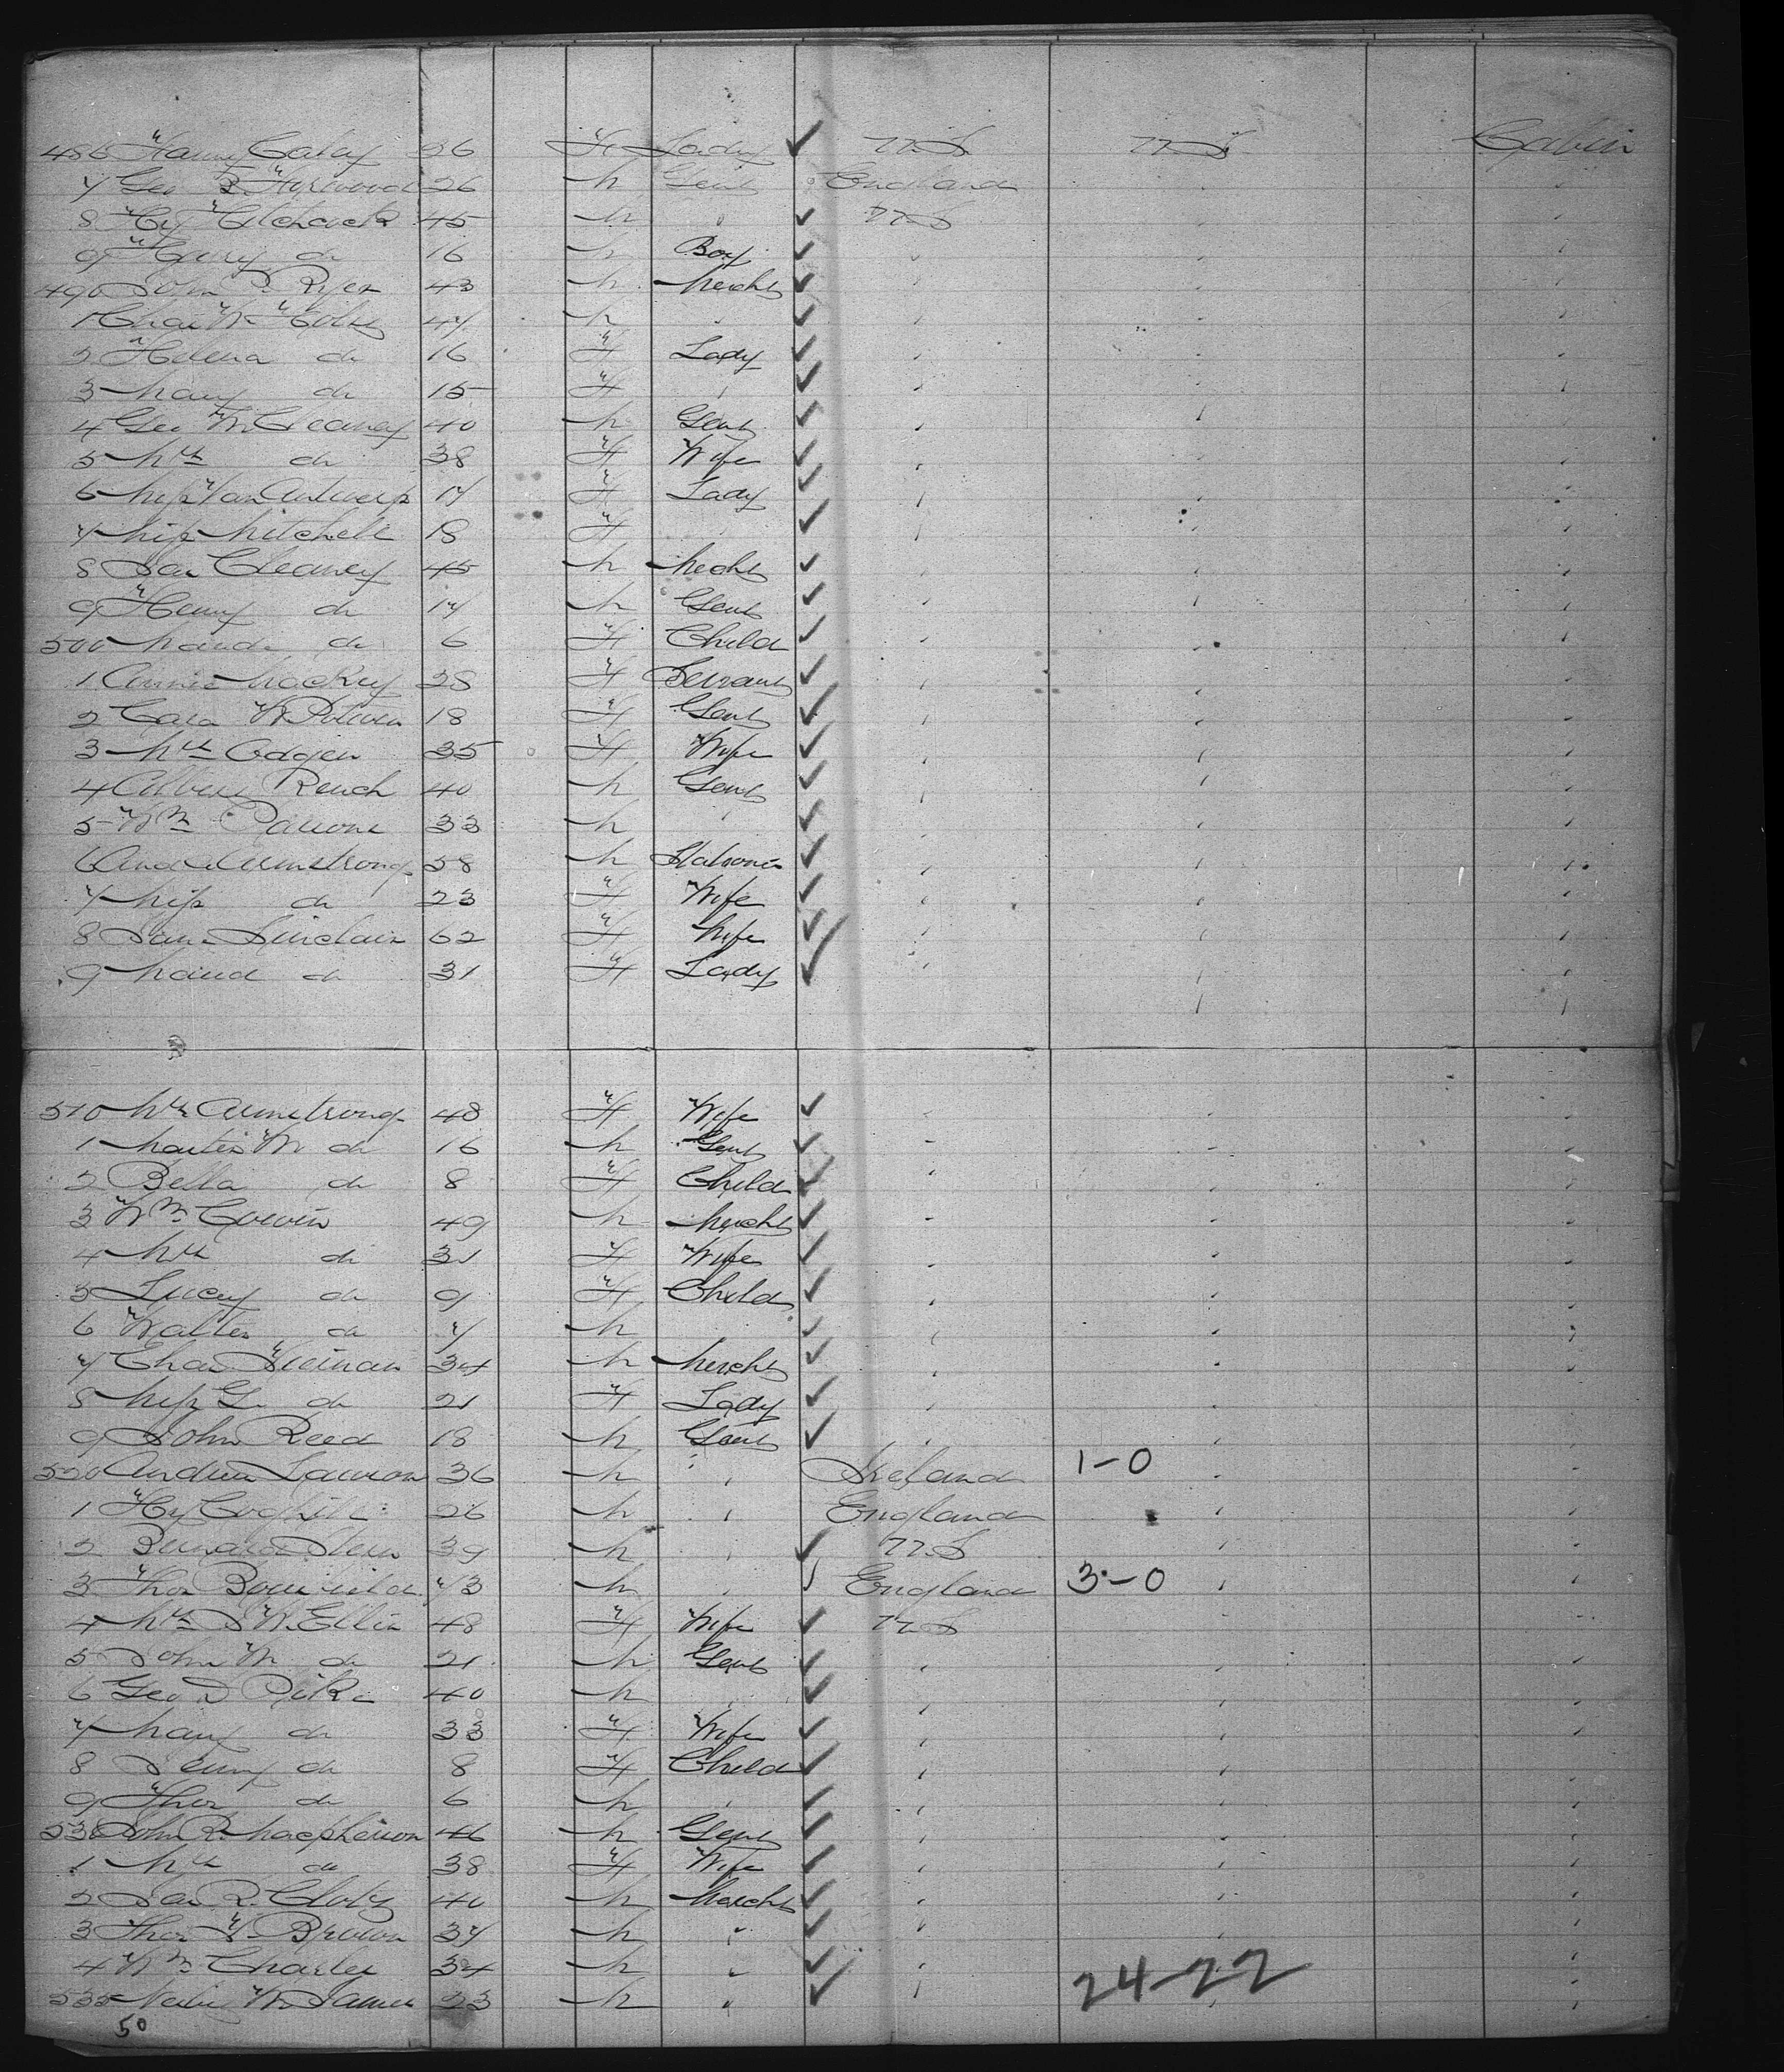 486 Fanny 36 F Lady U.S. U.S. Cabin
7 Geo 26 M Gent England
8 Hy 45 M " U.S
9 Harry do 16 M Boy
490 John P. Ryer 43 M Mercht
1 Chas W. 47 M "
2 Helena do 16 F Lady
3 Mary do 15 F "
4 Geo W Cleaney 40 M Gent
5 Mrs do 38 F Wife
6 Miss Van Antwerp 17 F Lady
7 Miss Mitchell 18 F
8 Jas Cleaney 45 M Mercht
9 Henry do 17 M Gent
500 Maude do 6 F Child
1 Annie Mackey 28 F Servant
2 Cara W 18 F Gent
3 Mrs Ogden 35 F Wife
4 Albert Reuch 40 M Gent
5 Wm Parsons 33 M "
6 Andw Armstrong 58 M Stationer
7 Miss do 23 F Wife
8 Jane Sinclair 62 F Wife
9 Maud do 31 F Lady
510 Mrs Armstrong 48 F Wife
1 Martin W do 16 M Gent
2 Bella do 8 F Child
3 Wm Corwin 49 M Mercht
4 Mrs do 31 F Wife
5 Lucy do 9 F Child
6 Walter do 7 M
7 Chas 34 M Mercht
8 Miss G. do 21 F Lady
9 John Reed 18 M Gent
520 Andrew Lawson 36 M " Ireland 1-0
1 Hy Coghill 26 M " England
2 Bernard Stern 39 M " U.S
3 Thos 73 M " England 3-0
4 Mrs J W. Ellis 48 F Wife U.S
5 John W do 21 M Gent
6 Geo D Pike 40 M
7 Mary do 33 F Wife
8 Jenny do 8 F Child
9 Thos do 6 M "
530 John R. Macpherson 46 M Gent
1 Mrs do 38 F Wife
2 Jas R. 40 M Mercht
3 Thos F. Brown 37 M "
4 Wm Charles 34 M " 24-22
535 W. James 23 M "
50